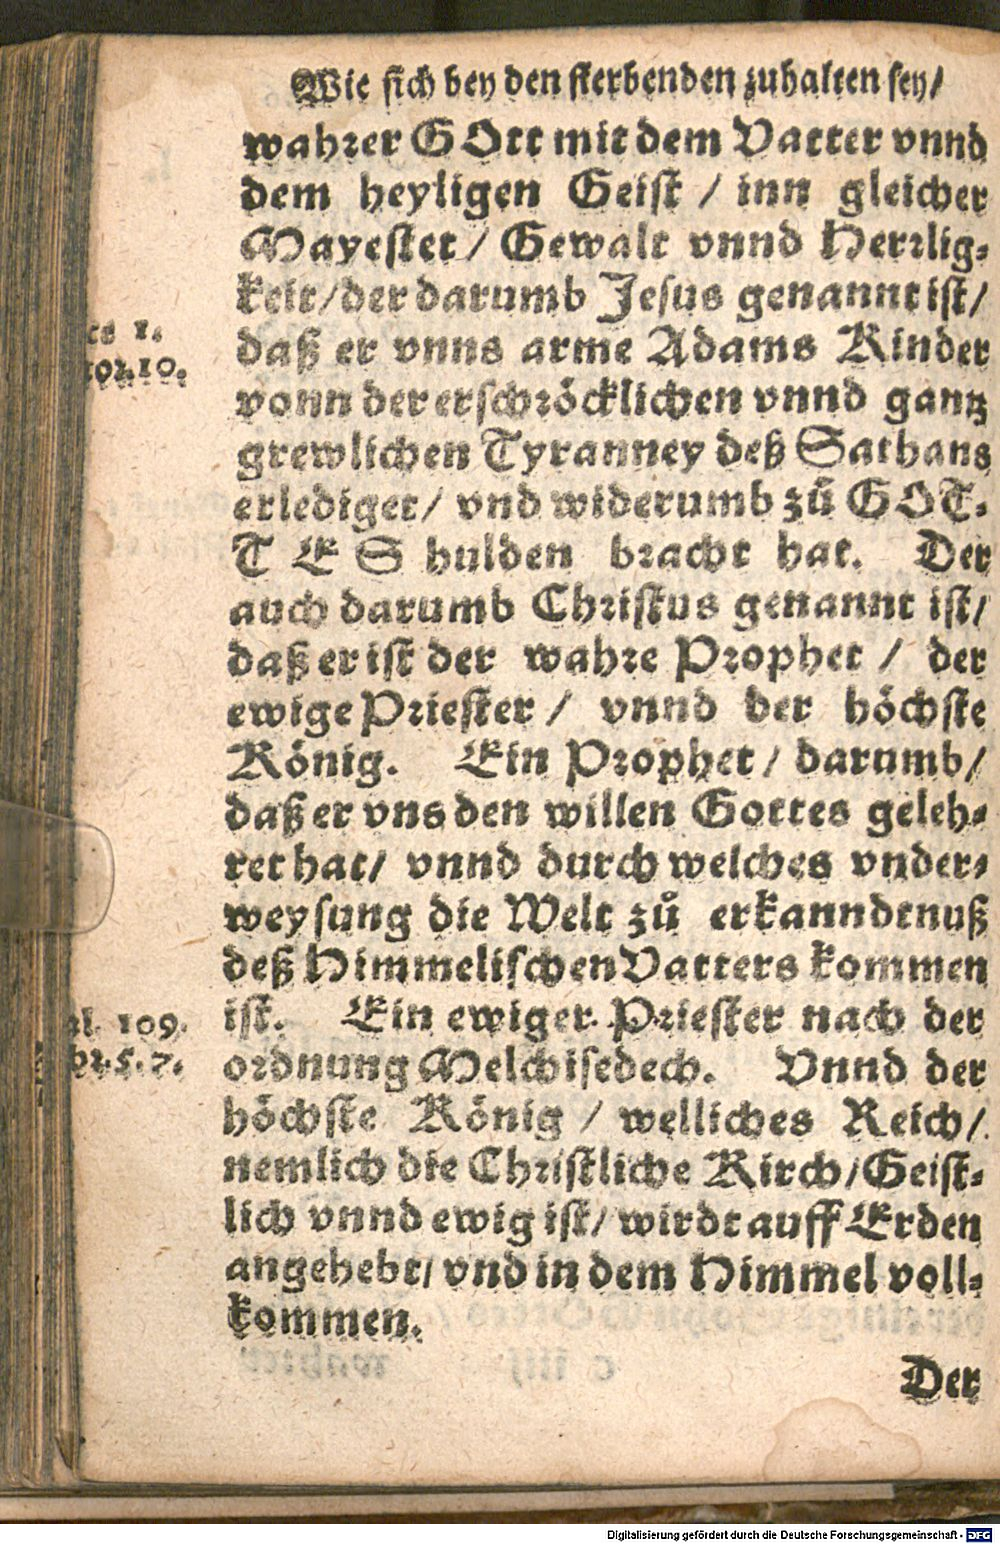 Wie sich bey den sterbenden zuhalten sey/
wahrer GOtt mit dem Vatter vnnd
dem heyligen Geist / inn gleicher
Mayestet/ Gewalt vnnd Herrlig-
keit/der darumb Jesus genannt ist/
daß er vnns arme Adams Kinder
vonn der erschröcklichen vnnd gantz
grewlichen Tyranney deß Sathans
erlediget/ vnd widerumb zů GOT-
TES hulden bracht hat. Der
auch darumb Christus genannt ist/
daß er ist der wahre Prophet / der
ewige Priester / vnnd der höchste
König. Ein Prophet/ darumb/
daß er vns den willen Gottes geleh-
ret hat/ vnnd durch welches vnder-
weysung die Welt zů erkanndtnuß
deß Himmelischen Vatters kommen
ist. Ein ewiger Priester nach der
ordnung Melchisedech. Vnnd der
höchste König / welliches Reich/
nemlich die Christliche Kirch/Geist-
lich vnnd ewig ist/ wirdt auff Erden
angehebt/ vnd in dem Himmel voll-
kommen.
Der
1.
10.
109.
5. 7.
Digitalisierung gefördert durch die Deutsche Forschungsgemeinschaft - DFG